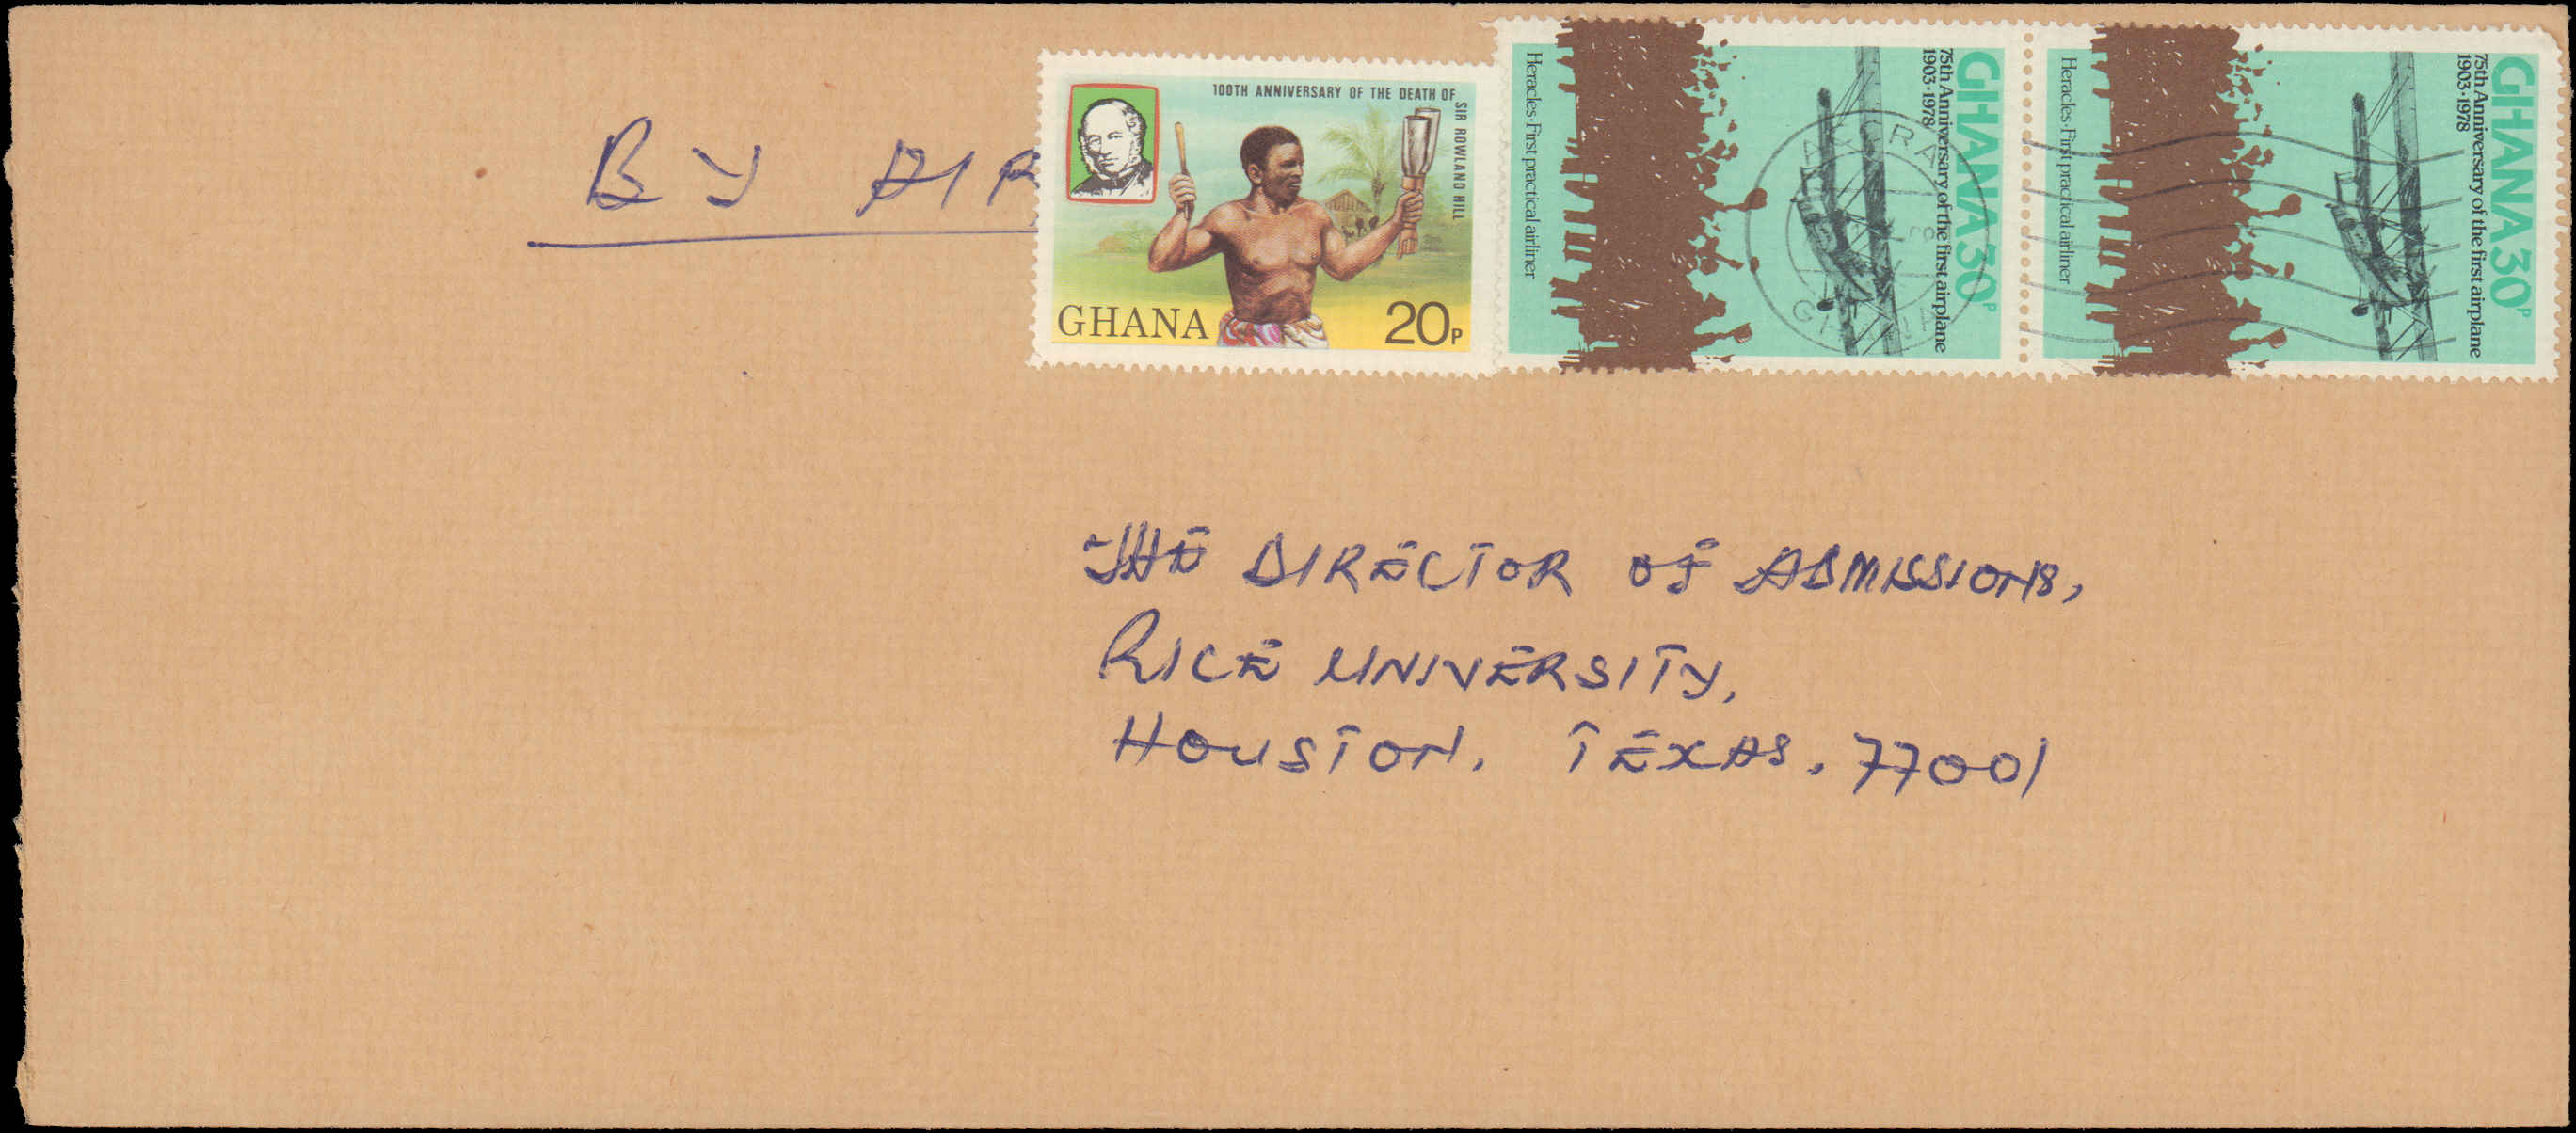 BY AIR
100TH ANNIVERSARY OF THE DEATH OF
SIR ROWLAND HILL
GHANA 20P
GHANA 30P
75th Anniversary of the first airplane
1903·1978
Heracles·First practical airliner
ACCRA
GHANA
GHANA 30P
75th Anniversary of the first airplane
1903·1978
Heracles·First practical airliner
THE DIRECTOR OF ADMISSIONS,
RICE UNIVERSITY,
HOUSTON. TEXAS. 77001